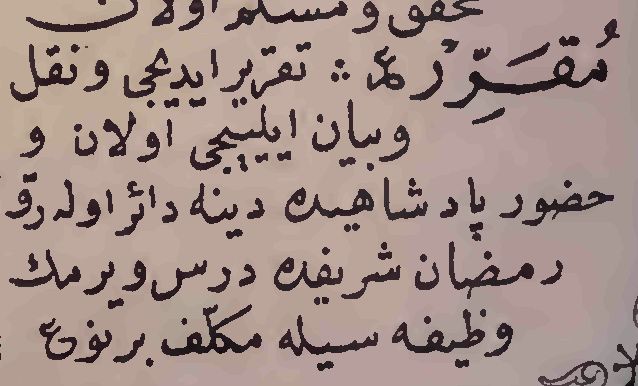 محقق و مسلم اولان
مُقَرِّرْ ع : تقرير ايديجى و نقل
وبيان ايلييجى اولان و
حضور پادشاهيده دينه دائر اوله رق
رمضان شريفده درس ويرمك
وظيفه سيله مكلّف بر نوع